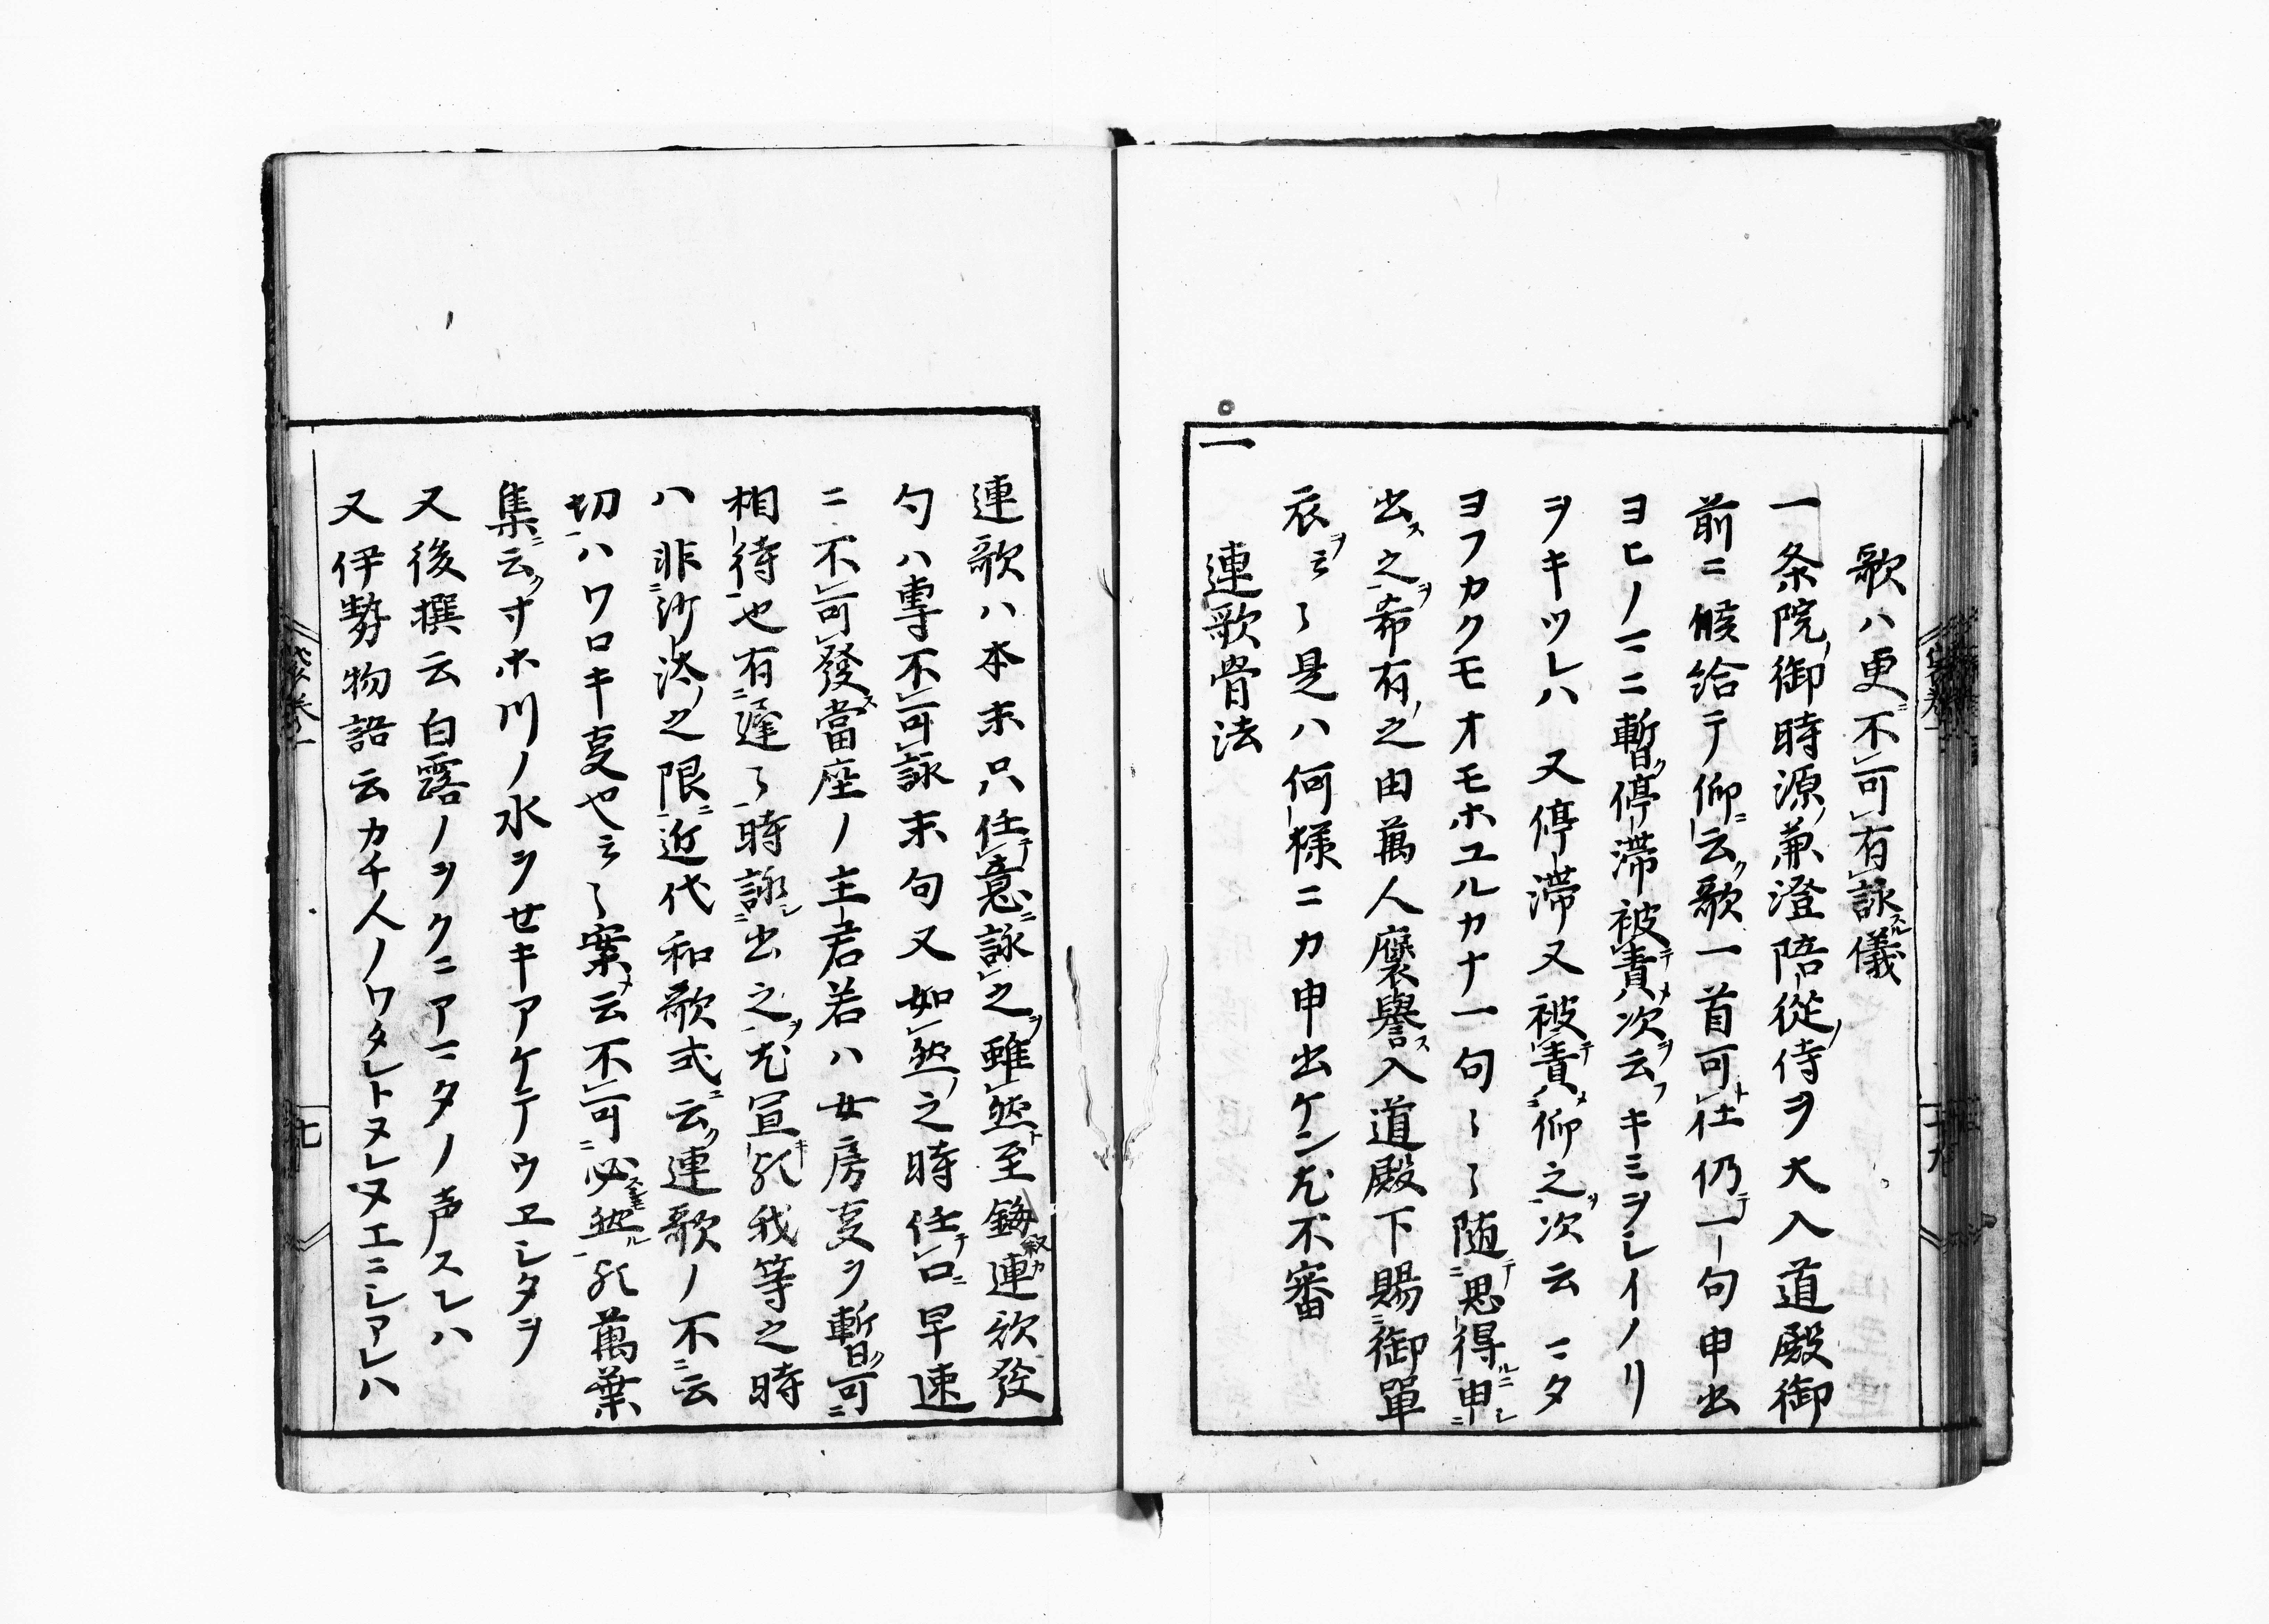 歌ハ更ニ不可有詠スル儀
一条院ノ御時源ノ兼澄陪従ノ侍ヲ大入道殿御
前ニ候給テ仰ニ云ク歌一首可仕ト仍テ一句申出
ヨヒノマニ暫ク停滞被責テ次ヲ云フキミヲシイノリ
ヲキツレハ 又停滞又被責テ仰之ヲ次云 マタ
ヨフカクモオモホユルカナ一句〻〻随テ思得ルニ申シ
出ス之ヲ希有ノ之由萬人褒誉ス入道殿下賜御單
衣ヲ云〻是ハ何様ニカ申出ケン尤不審
一
連歌骨法
連歌ハ本末只任テ意ニ詠之ヲ雖然ト至鎖連歌發
句ハ専不可詠末句又如然ノ之時任テ口ニ早速
ニ不可發ス當座ノ主君若ハ女房事ヲ暫ク可
相待也有遅〻時詠シ出之ヲ尤宜キ歟我等之時
ハ非沙汰ノ之限ニ近代和歌式ニ云ク連歌ノ不云
切ハワロキ事也云〻案メ云不可必然ル歟萬葉
集ニ云ク サホ川ノ水ヲせキアケテウヱシタヲ
又後撰云白露ノヲクニアマタノ声スレハ
又伊勢物語云カチ人ノワタレトヌレヌエニシアレハ
七